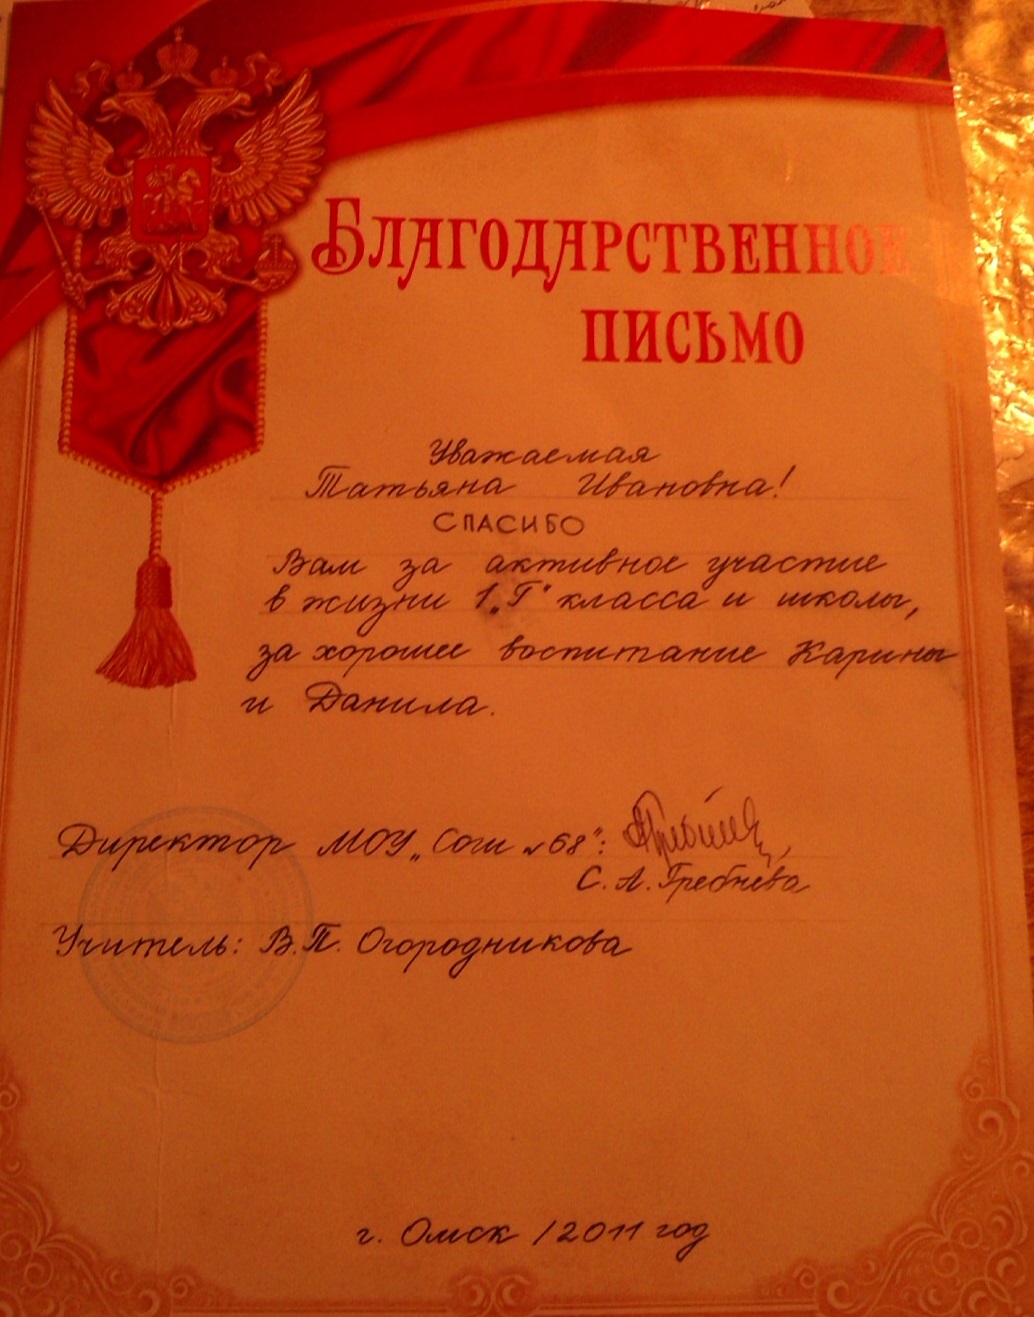 БЛАГОДАРСТВЕННОЕ
ПИСЬМО
Уважаемая
Татьяна Ивановна!
СПАСИБО
Вам за активное участие
в жизни 1 „Г" класса и школы,
за хорошее воспитание Карины
и Данила.
Директор МОУ „Сош №68":
С. А. Гребнева
Учитель: В.П. Огородникова
г. Омск /2011 год